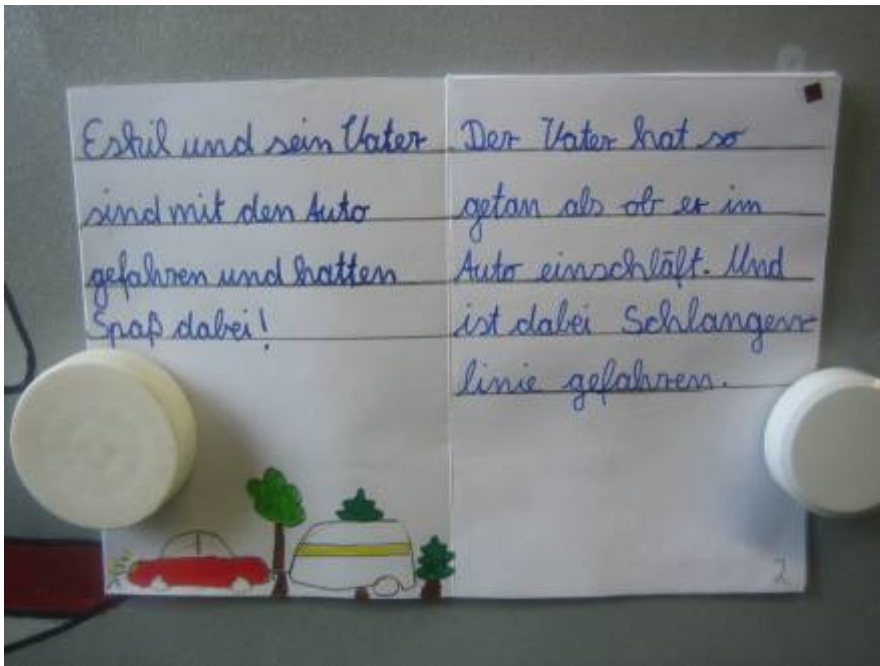 Eskil und sein Vater
sind mit den Auto
gefahren und hatten
Spaß dabei!
Der Vater hat so
getan als ob er im
Auto einschläft. Und
ist dabei Schlangen-
linie gefahren.
2